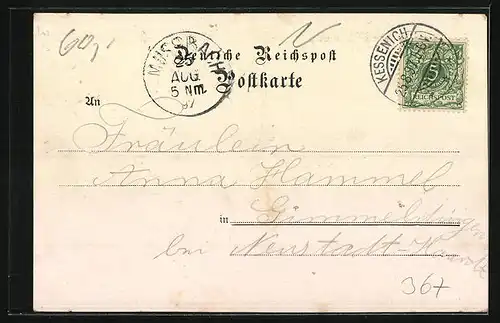 60,
N
Deutsche Reichspost
Postkarte
MUSSBACH
25
AUG
5 Nm.
97
KESSENICH
REICHSPOST
An
Fräulein
Anna Hammel
in Gimmeldingen
bei Neustadt-
367